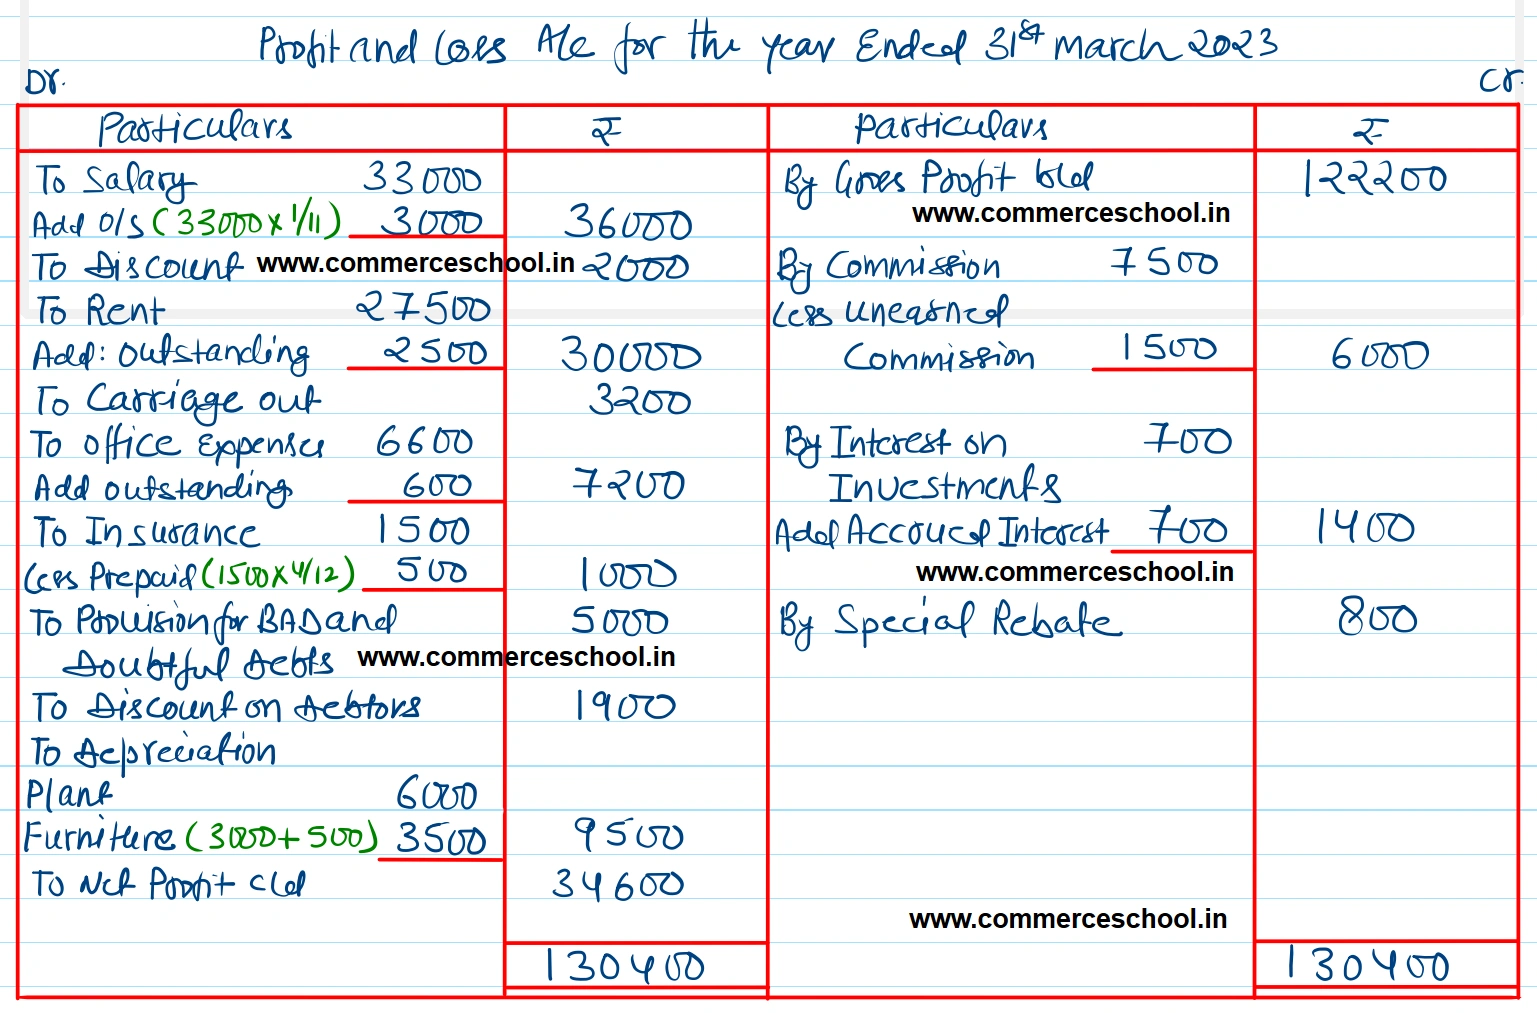 Profit and Loss A/c for the year Ended 31st march 2023
Dr. Cr.
Particulars ₹ Particulars ₹
To Salary 33000 By Gross Profit b/d 122200
Add O/s (33000 x 1/11) 3000 36000 www.commerceschool.in
To Discount www.commerceschool.in 2000 By Commission 7500
To Rent 27500 Less Unearned
Add: Outstanding 2500 30000 Commission 1500 6000
To Carriage out 3200
To office Expenses 6600 By Interest on 700
Add outstanding 600 7200 Investments
To Insurance 1500 Add Accrued Interest 700 1400
Less Prepaid (1500 x 4/12) 500 1000 www.commerceschool.in
To Provision for BAD and 5000 By Special Rebate 800
Doubtful Debts www.commerceschool.in
To Discount on Debtors 1900
To Depreciation
Plant 6000
Furniture (3000 + 500) 3500 9500
To Net Profit c/d 34600
www.commerceschool.in
130400 130400